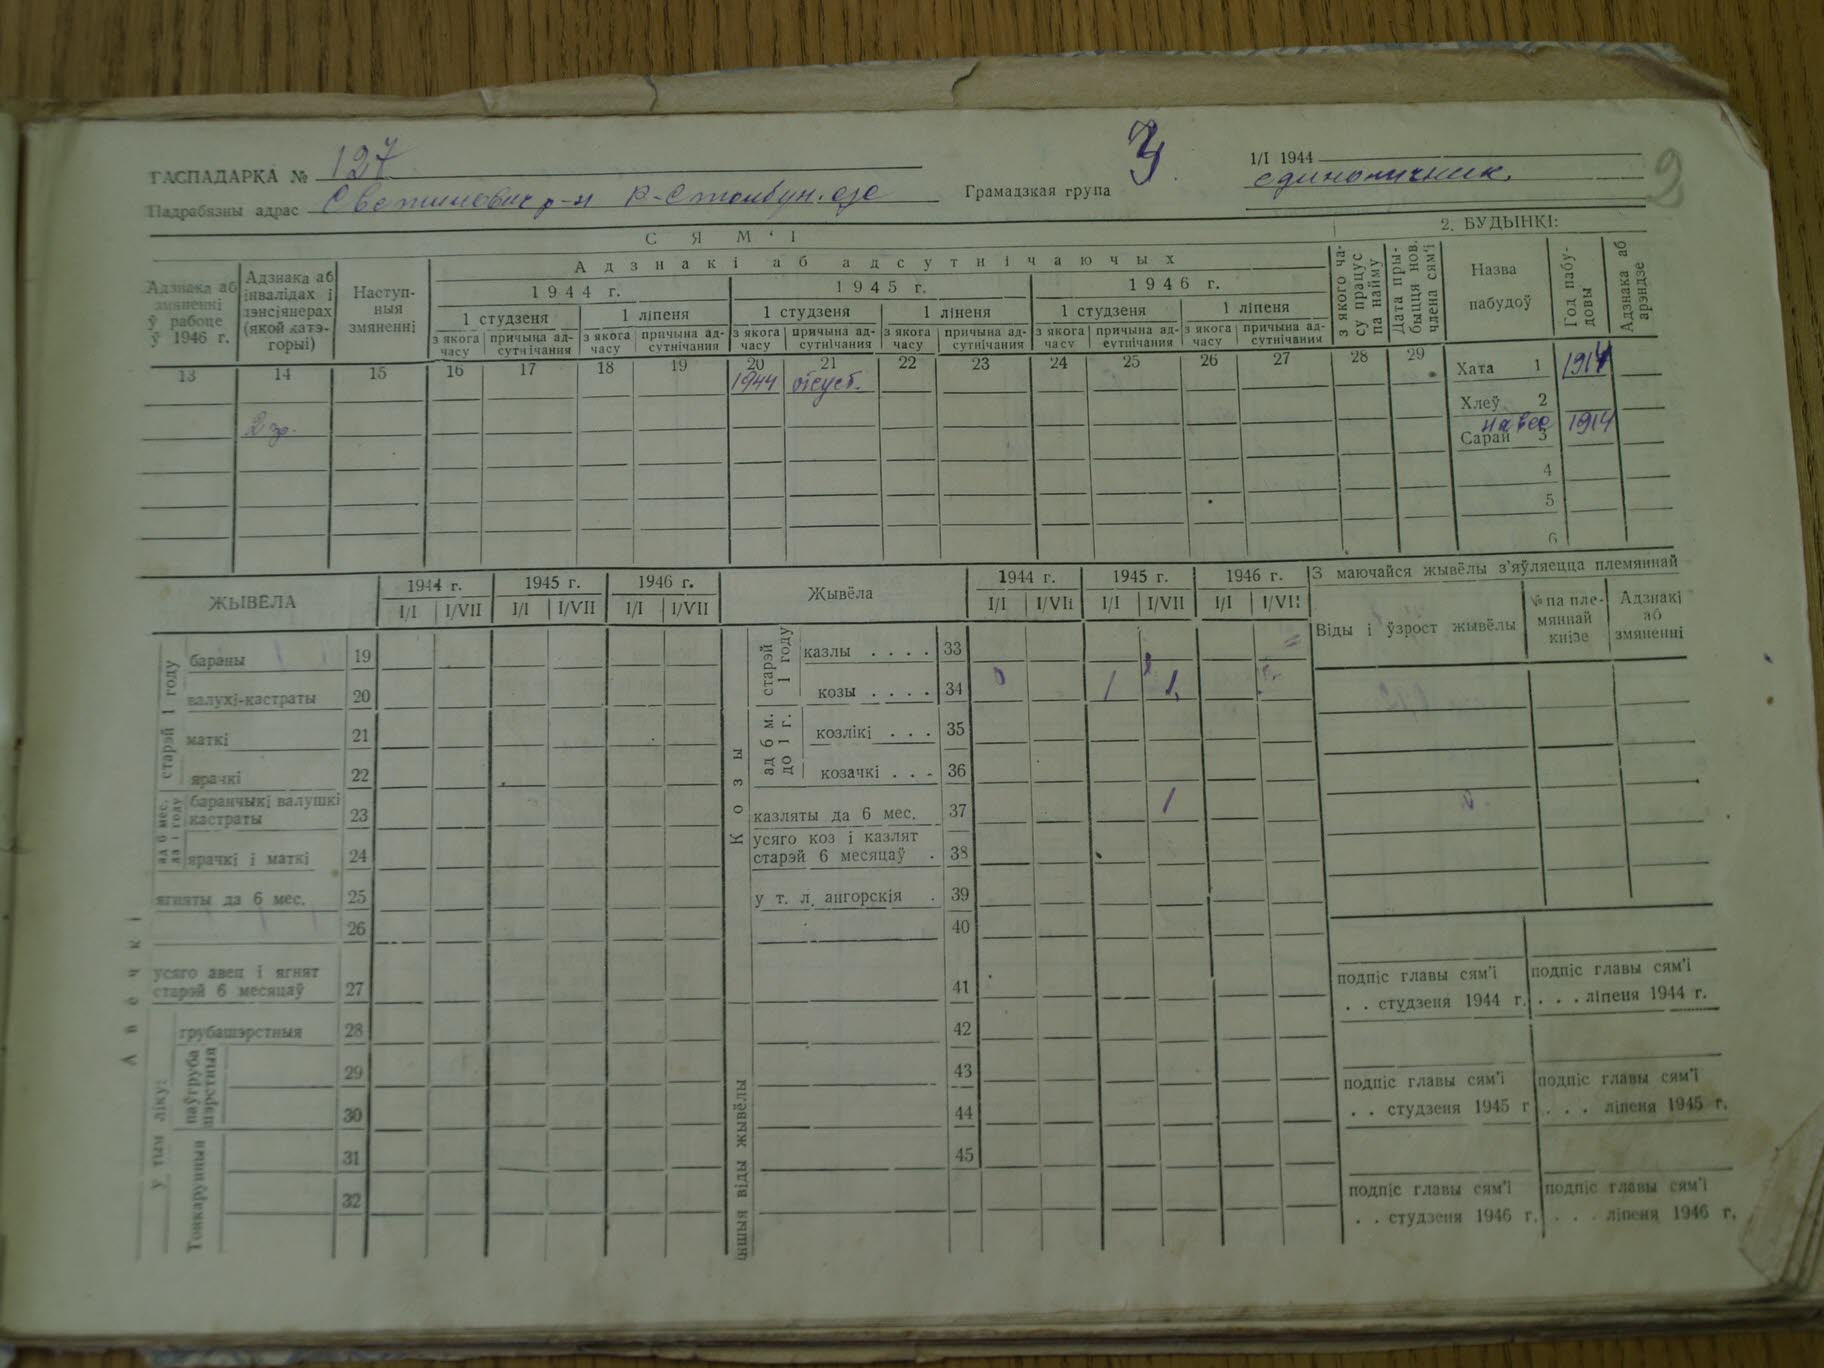 ГАСПАДАРКА № 127
Падрабязны адрас Светиловичр-н В-Столбун. с/с
Грамадзкая група 3
1/I 1944
единоличник.
2
СЯМ'І
2. БУДЫНКІ:
Адзнака аб змяненні ў рабоце ў 1946 г.
Адзнака аб інвалідах і пэнсіянерах (якой катэгорыі)
Наступ-ныя змяненні
Адзнакі аб адсутнічаючых
1944 г.
1945 г.
1946 г.
1 студзеня
1 ліпеня
1 студзеня
1 ліпеня
1 студзеня
1 ліпеня
з якога часу
причына ад-сутнічання
з якога часу
причына ад-сутнічания
з якога часу
причына ад-сутнічания
з якога часу
причына ад-сутнічания
з якога часу
причына ад-сутнічания
з якога часу
причына ад-сутнічания
з якога ча-су працуе па найму
Дата пры-быцця нов. члена сям'і
Назва пабудоў
Год пабу-довы
Адзнака аб арэндзе
13 14 15 16 17 18 19 20 21 22 23 24 25 26 27 28 29
1944 отсут.
2 гр.
Хата 1 1914
Хлеў 2
навес 1914
Сарай 3
4
5
6
ЖЫВЁЛА
1944 г. 1945 г. 1946 г.
I/I I/VII I/I I/VII I/I I/VII
Жывёла
1944 г. 1945 г. 1946 г.
I/I I/VII I/I I/VII I/I I/VII
З маючайся жывёлы з'яўляецца племяннай
Віды і ўзрост жывёлы
№ па пле-мяннай кнізе
Адзнакі аб змяненні
Авечкі
старэй 1 году
бараны 19
валухі-кастраты 20
маткі 21
ярачкі 22
ад 6 мес. да 1 году
баранчыкі валушкі кастраты 23
ярачкі і маткі 24
ягняты да 6 мес. 25
26
усяго авец і ягнят старэй 6 месяцаў 27
ў тым ліку:
грубашэрстныя 28
паўгруба шэрстныя
29
30
Тонкарунныя
31
32
Козы
старэй 1 году
казлы . . . . 33
козы . . . . 34 1 1
ад 6 м. до 1 г.
козлікі . . . 35
козачкі . . . 36
казляты да 6 мес. 37 1
усяго коз і казлят старэй 6 месяцаў . 38
у т. л. ангорскія . 39
40
41
іншыя віды жывёлы
42
43
44
45
подпіс главы сям'і
. . студзеня 1944 г.
подпіс главы сям'і
. . . ліпеня 1944 г.
подпіс главы сям'і
. . студзеня 1945 г
подпіс главы сям'і
. . . ліпеня 1945 г.
подпіс главы сям'і
. . студзеня 1946 г.
подпіс главы сям'і
. . . ліпеня 1946 г.